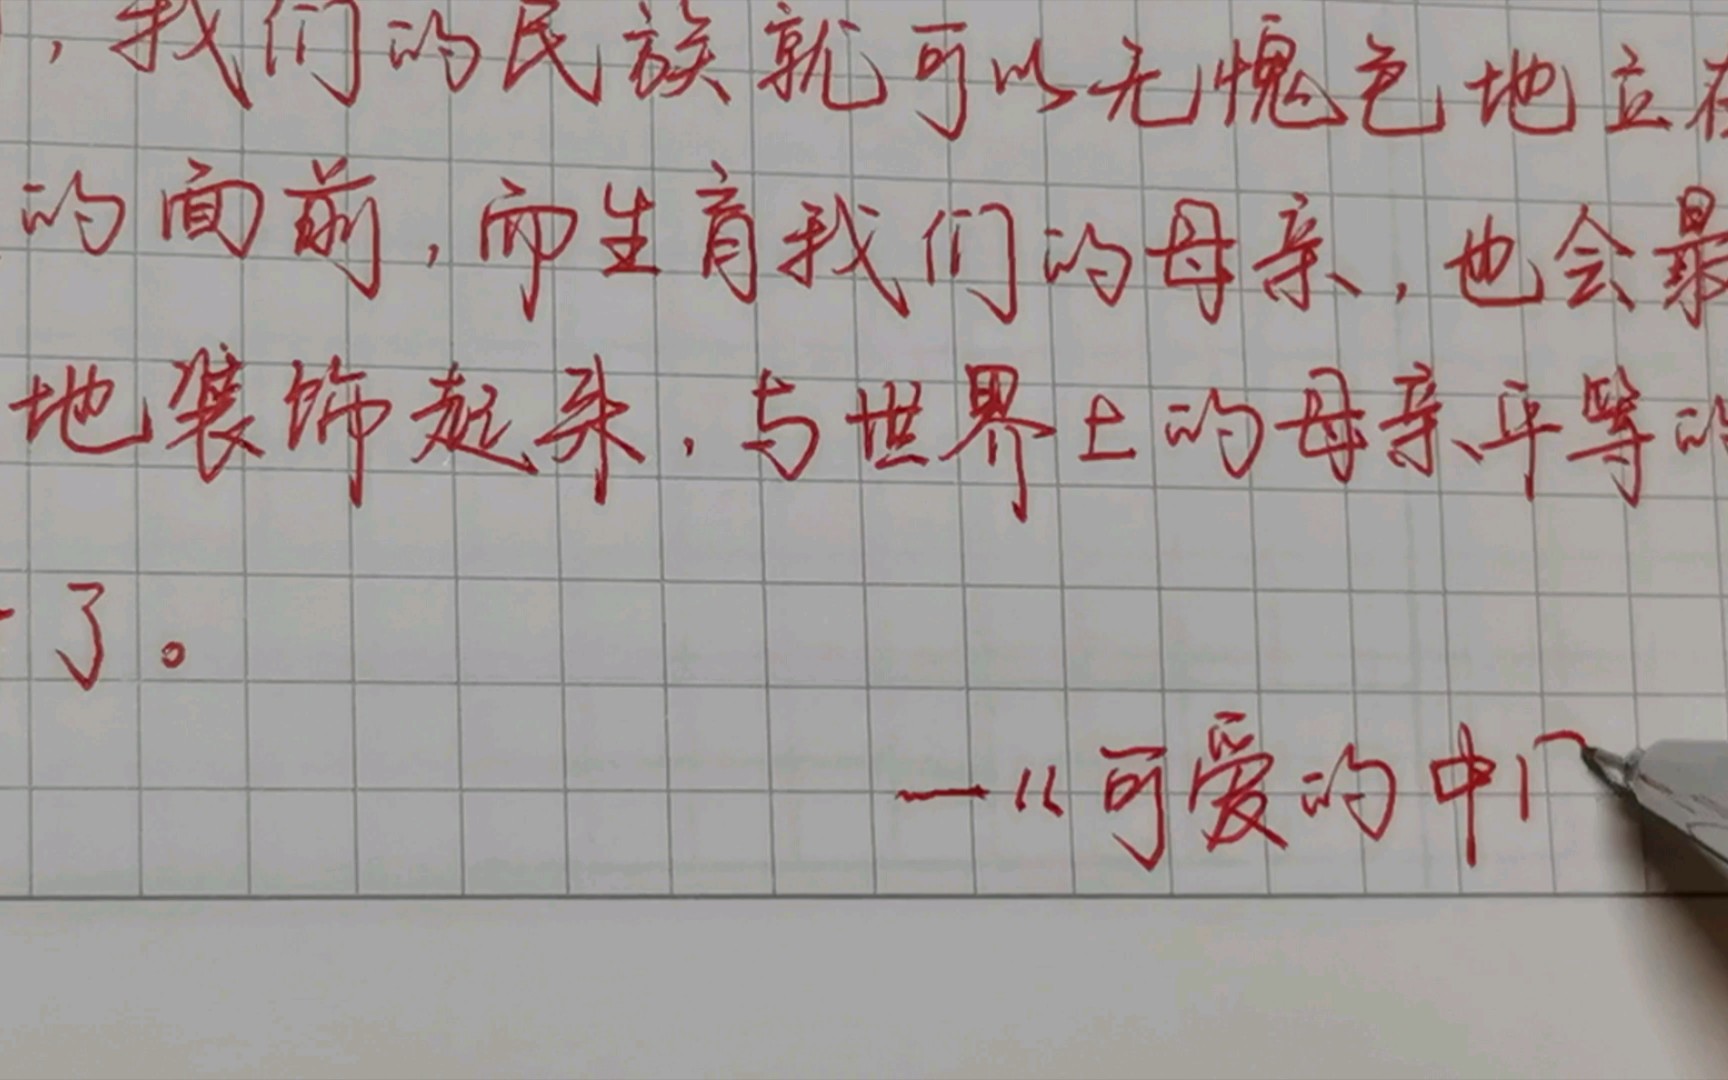 ，我们的民族就可以无愧色地立在
的面前，而生育我们的母亲，也会最
地装饰起来，与世界上的母亲平等的
了。
—《可爱的中